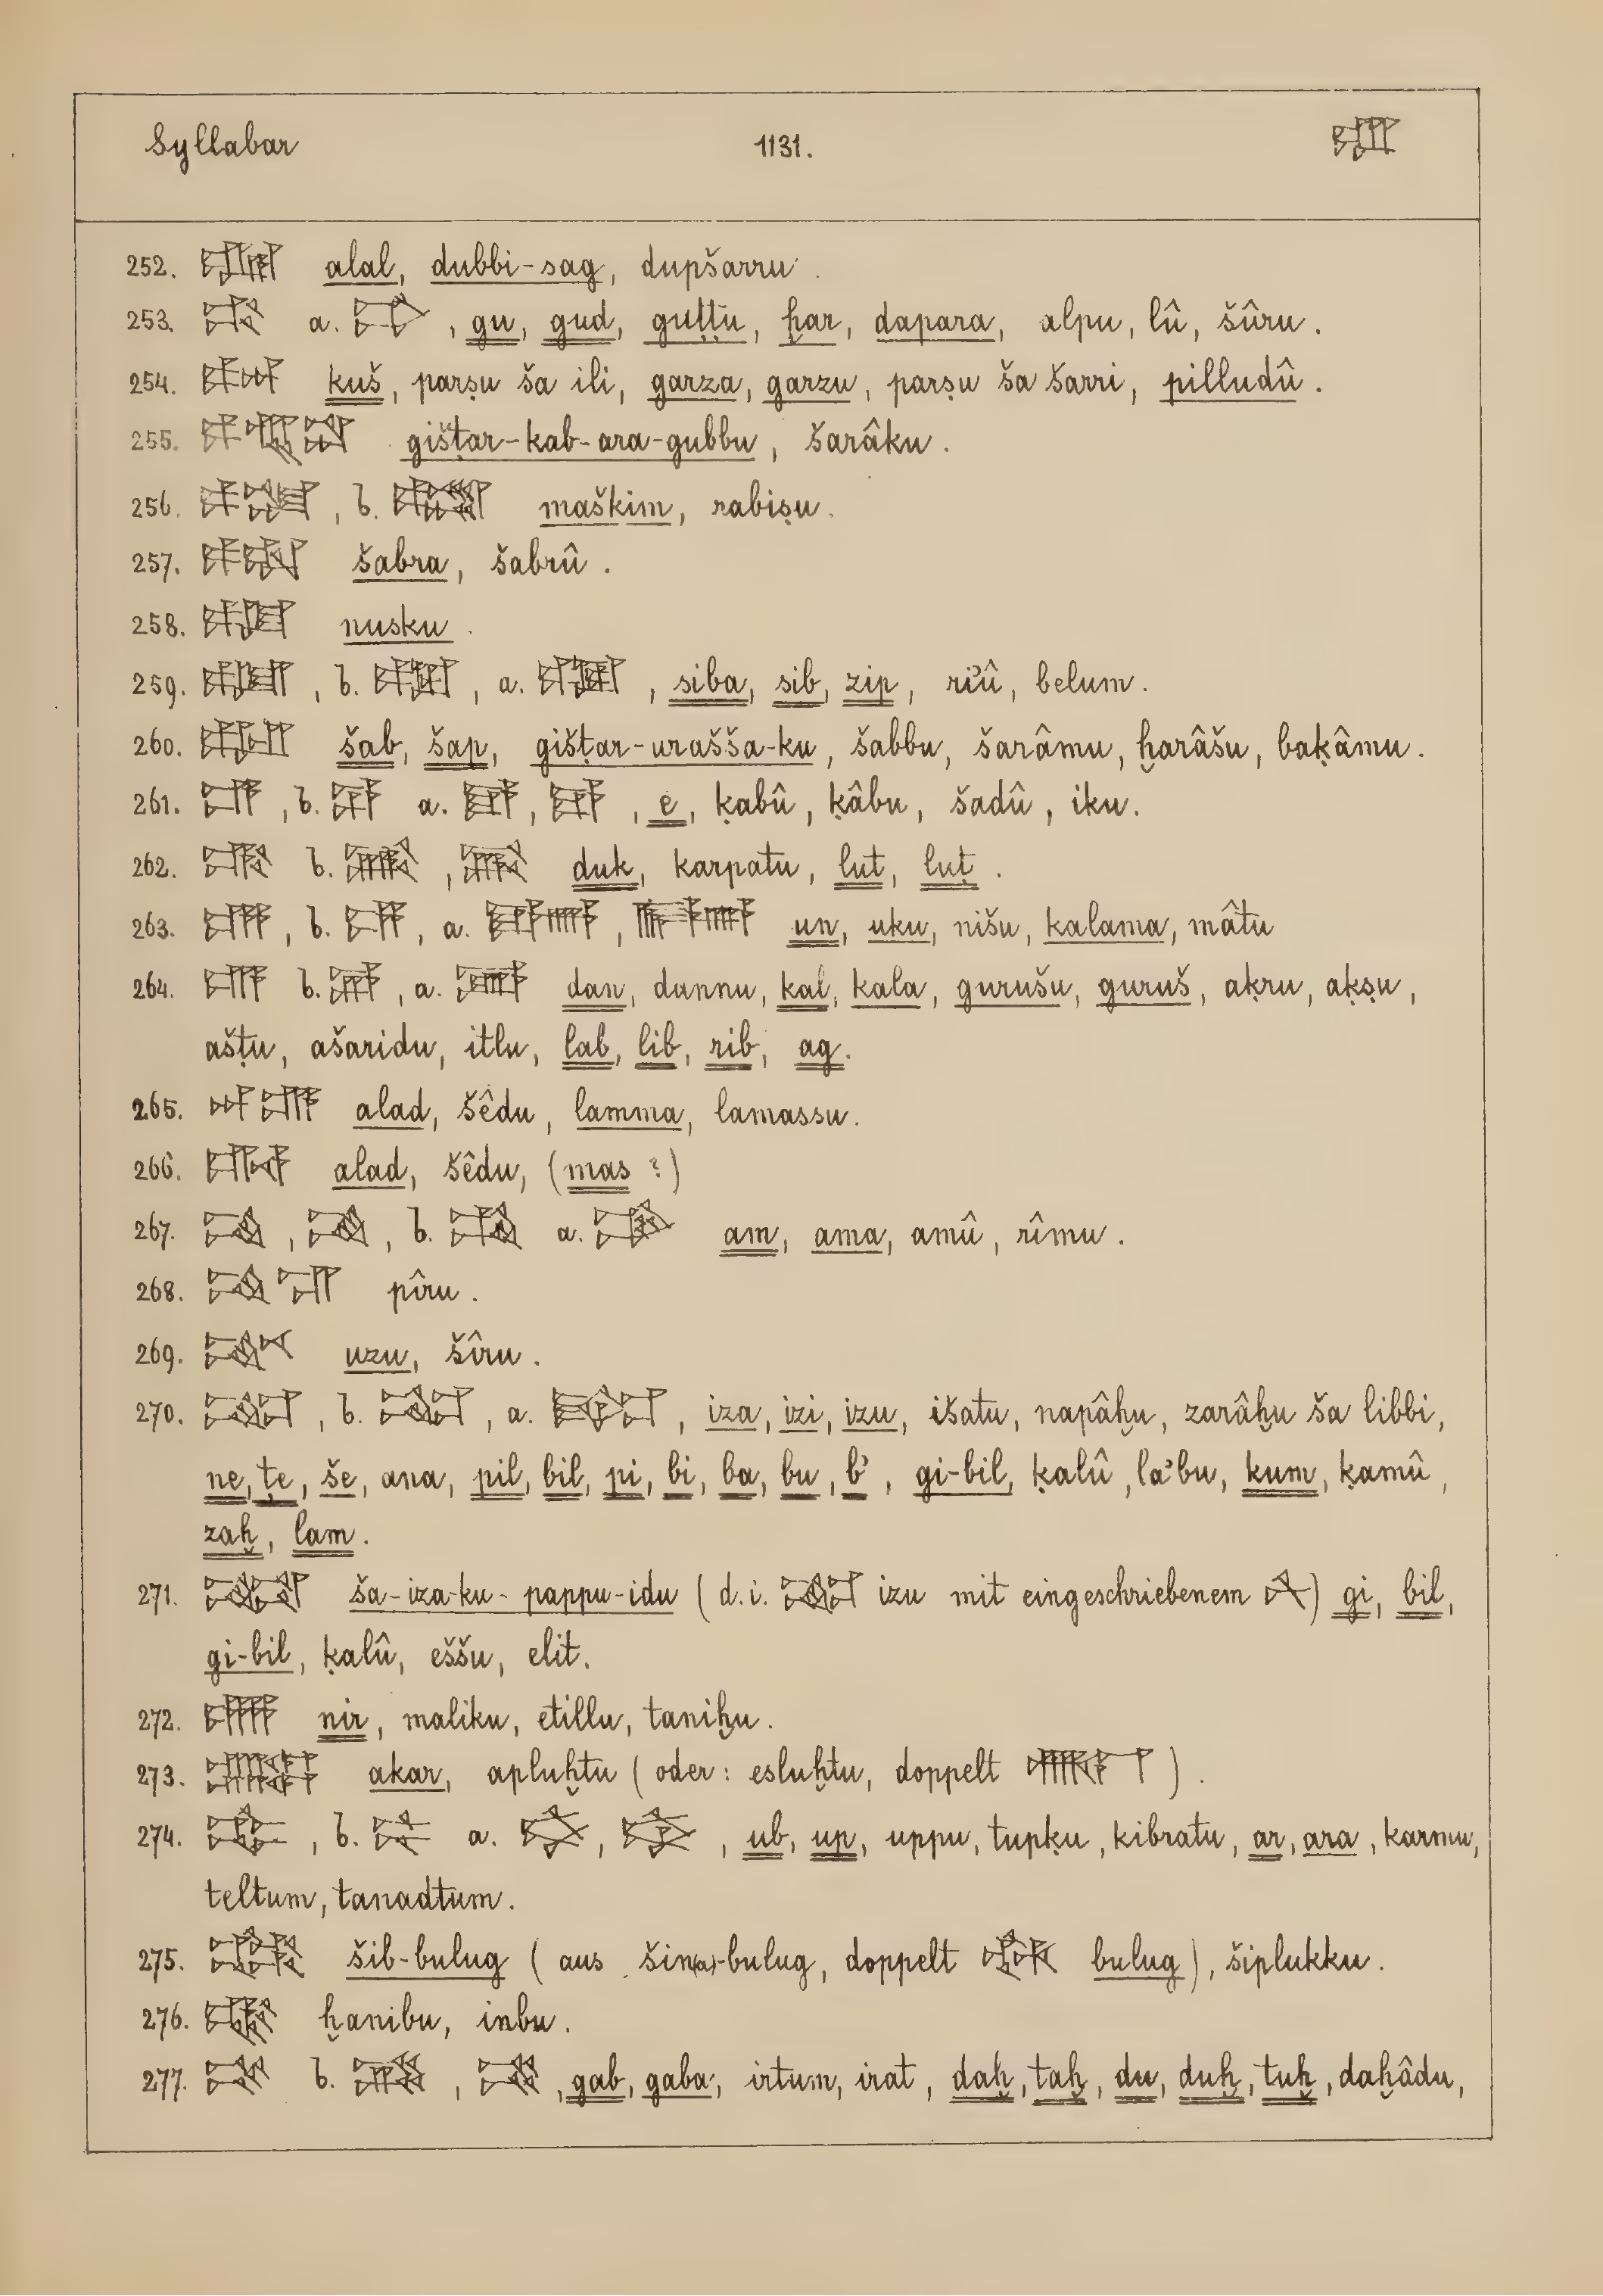 Syllabar 1131.
252. alal, dubbi-sag, dupšarru.
253. a. , gu, gud, guṭṭu, ḫar, dapara, alpu, lû, šûru.
254. kuš, parṣu ša ili, garza, garzu, parṣu ša šarri, pilludû.
255. gišṭar-kab-ara-gubbu, šarâku.
256. , b. maškim, rabiṣu.
257. šabra, šabrû.
258. nusku.
259. , b. , a. , siba, sib, zip, ri'û, belum.
260. šab, šap, gišṭar-urašša-ku, šabbu, šarâmu, ḫarâšu, baḳâmu.
261. , b. a. , , e, ḳabû, ḳâbu, šadû, iku.
262. b. , duk, karpatu, lut, luṭ.
263. , b. , a. , un, uku, nišu, kalama, mâtu
264. b. , a. dan, dannu, kal, kala, gurušu, guruš, aḳru, aḳṣu,
ašṭu, ašaridu, itlu, lab, lib, rib, ag.
265. alad, šêdu, lamma, lamassu.
266. alad, šêdu, (mas ?)
267. , , b. a. am, ama, amû, rîmu.
268. pîru.
269. uzu, šîru.
270. , b. , a. , iza, izi, izu, išatu, napâḫu, zarâḫu ša libbi,
ne, ṭe, še, ana, pil, bil, pi, bi, ba, bu, b', gi-bil, ḳalû, la'bu, kum, ḳamû,
zaḫ, lam.
271. ša-iza-ku-pappu-idu (d.i. izu mit eingeschriebenem ) gi, bil,
gi-bil, ḳalû, eššu, elit.
272. nir, maliku, etillu, taniḫu.
273. akar, apluḫtu (oder: esluḫtu, doppelt ).
274. , b. a. , , ub, up, uppu, tupḳu, kibratu, ar, ara, karmu,
teltum, tanadtum.
275. šib-bulug (aus šin(a)-bulug, doppelt bulug), šiplukku.
276. ḫanibu, inbu.
277. b. , , gab, gaba, irtum, irat, daḫ, taḫ, du, duḫ, tuḫ, daḫâdu,